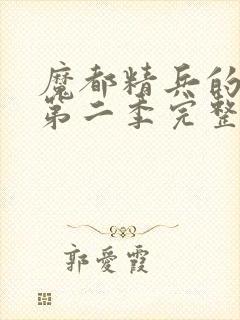 魔都精兵的
第二季完整
郭愛霞